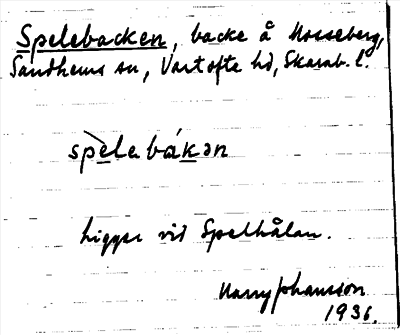 Spelebacken, backe å Mosseberg,
Sandhems sn, Vartofta hd, Skarab. l.
spèle bákən
Ligger vid Spelhålan.
Harry Johansson
1936.